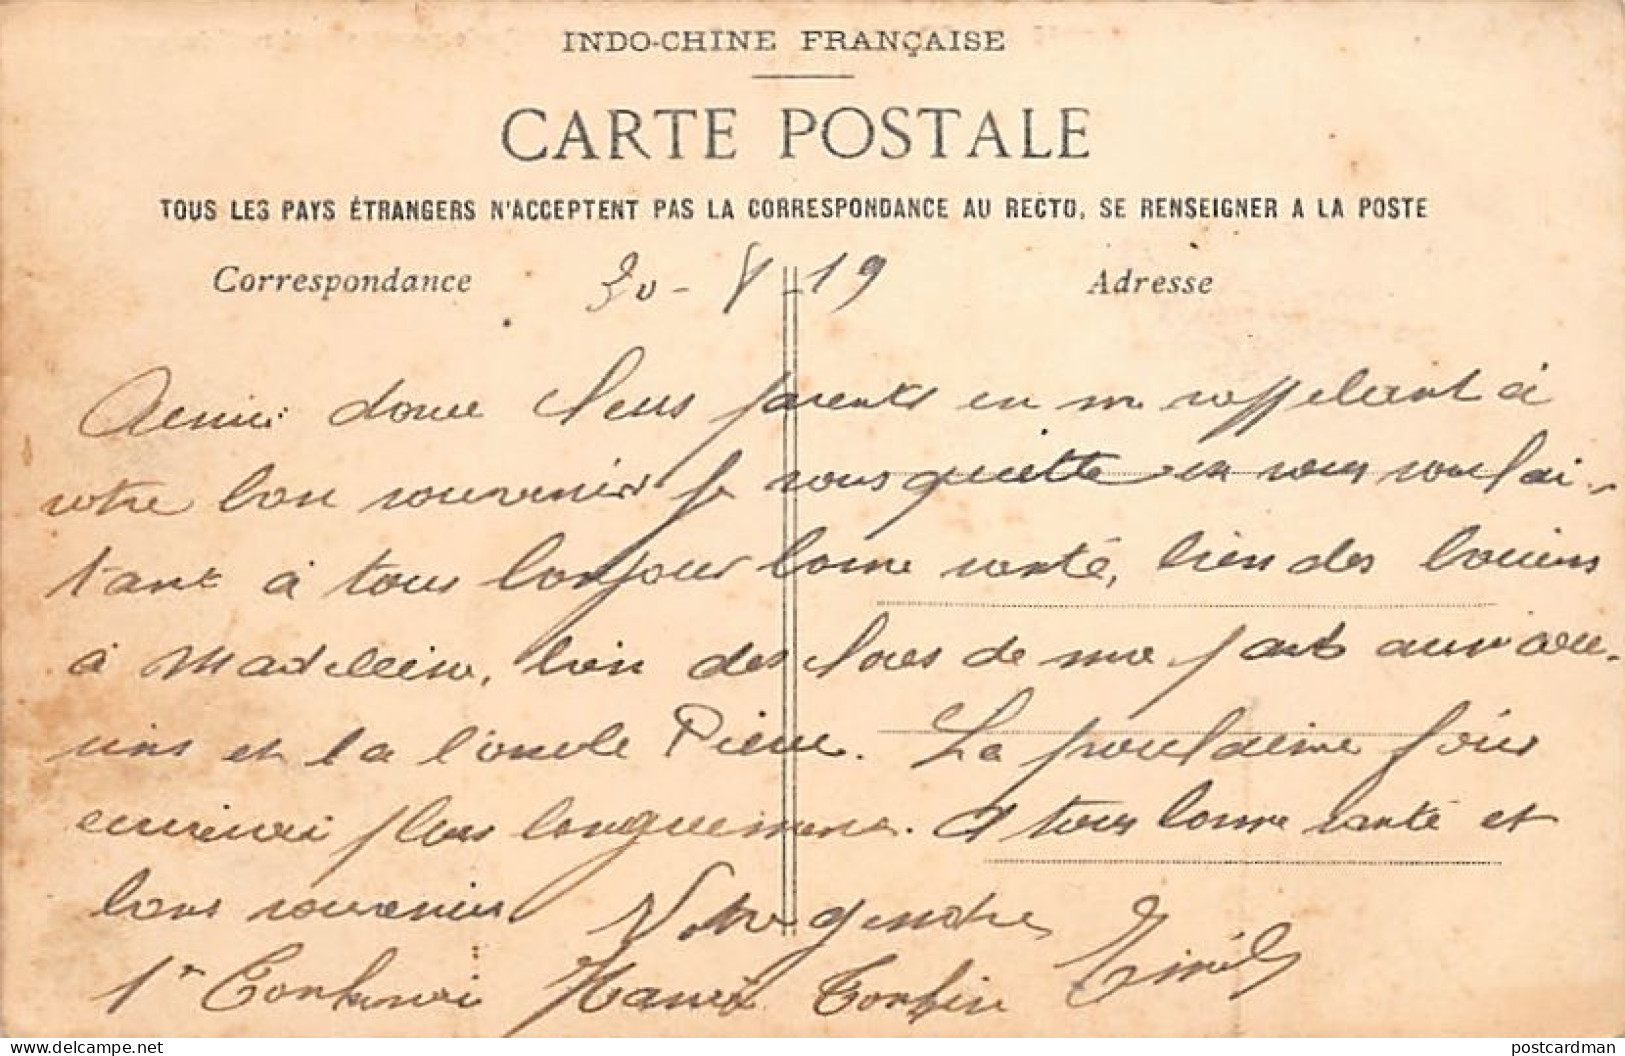 INDO-CHINE FRANÇAISE
CARTE POSTALE
TOUS LES PAYS ÉTRANGERS N'ACCEPTENT PAS LA CORRESPONDANCE AU RECTO, SE RENSEIGNER A LA POSTE
Correspondance
30-8-19
Adresse
donc parents en m rappelant à
votre bon souvenir je vous quitte en vous souhai-
tant à tous bonjour bonne santé, bien des
à Madeleine, bien des de ma part aussi
et la l'oncle Pierre. La prochaine fois
plus longuement. A tous bonne santé et
bons souvenirs Votre gendre
1r Tonkinois Hanoï Tonkin
postcardman
www.delcampe.net